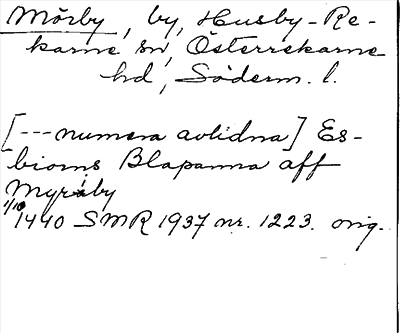 Mörby, by, Husby-Re-
karne sn, Österrekarne
hd, Söderm. l.
[---numera avlidna] Es-
bioms Blapanna aff
Myriby
1/10 1440 SMR 1937 nr. 1223. orig.